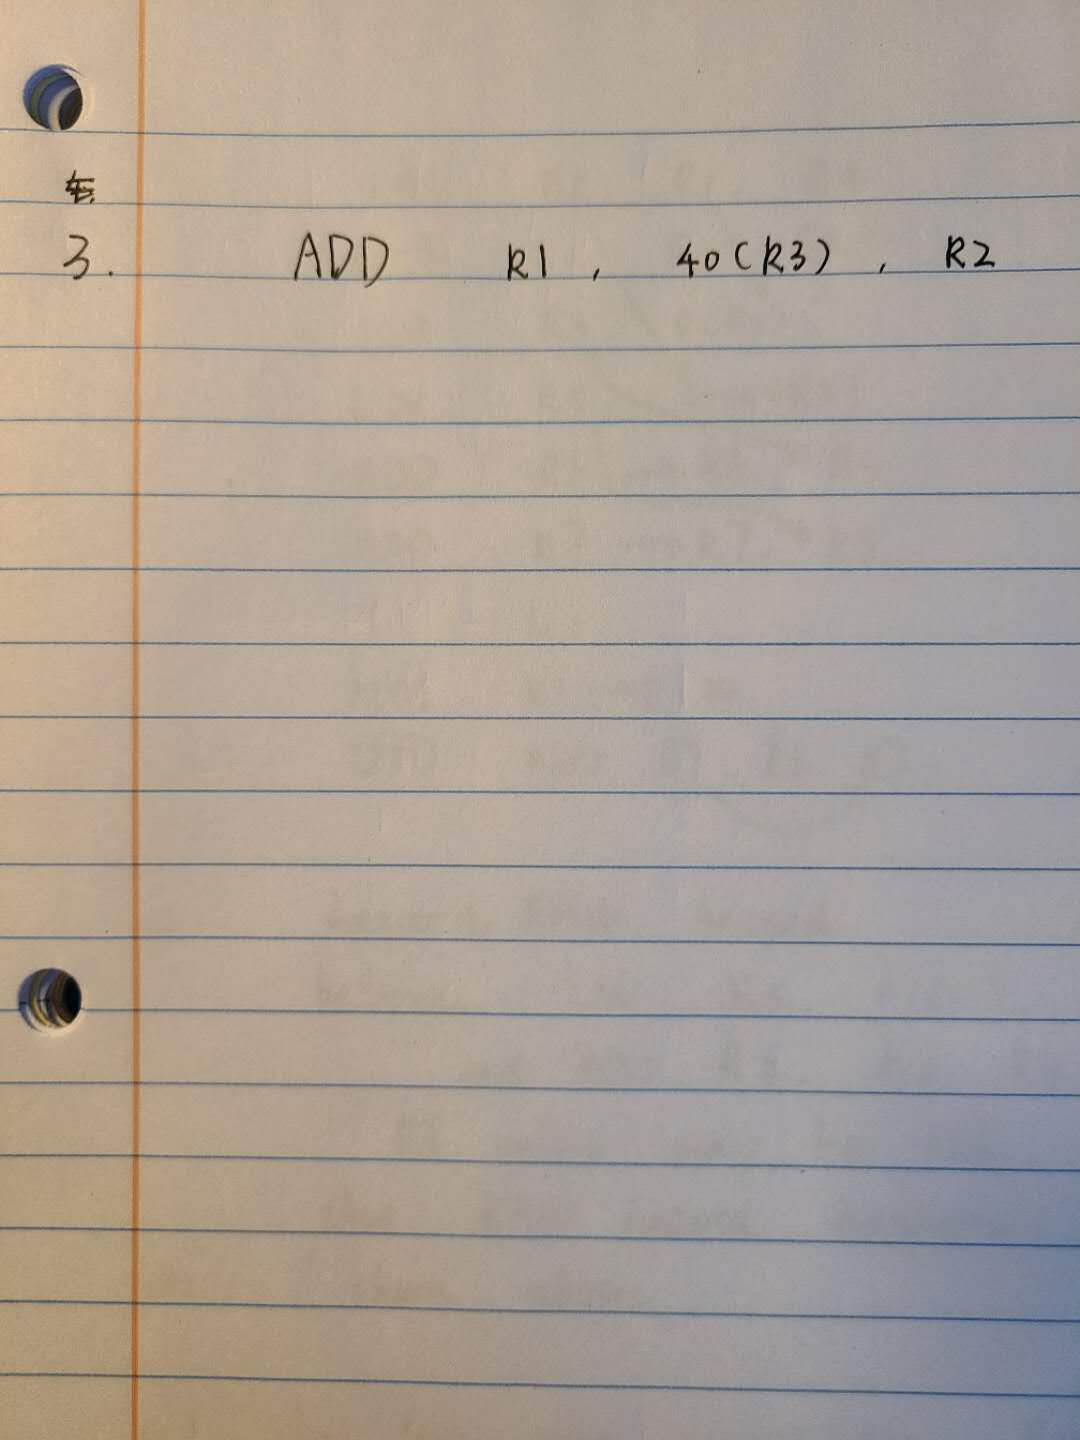 3. ADD R1, 40(R3), R2